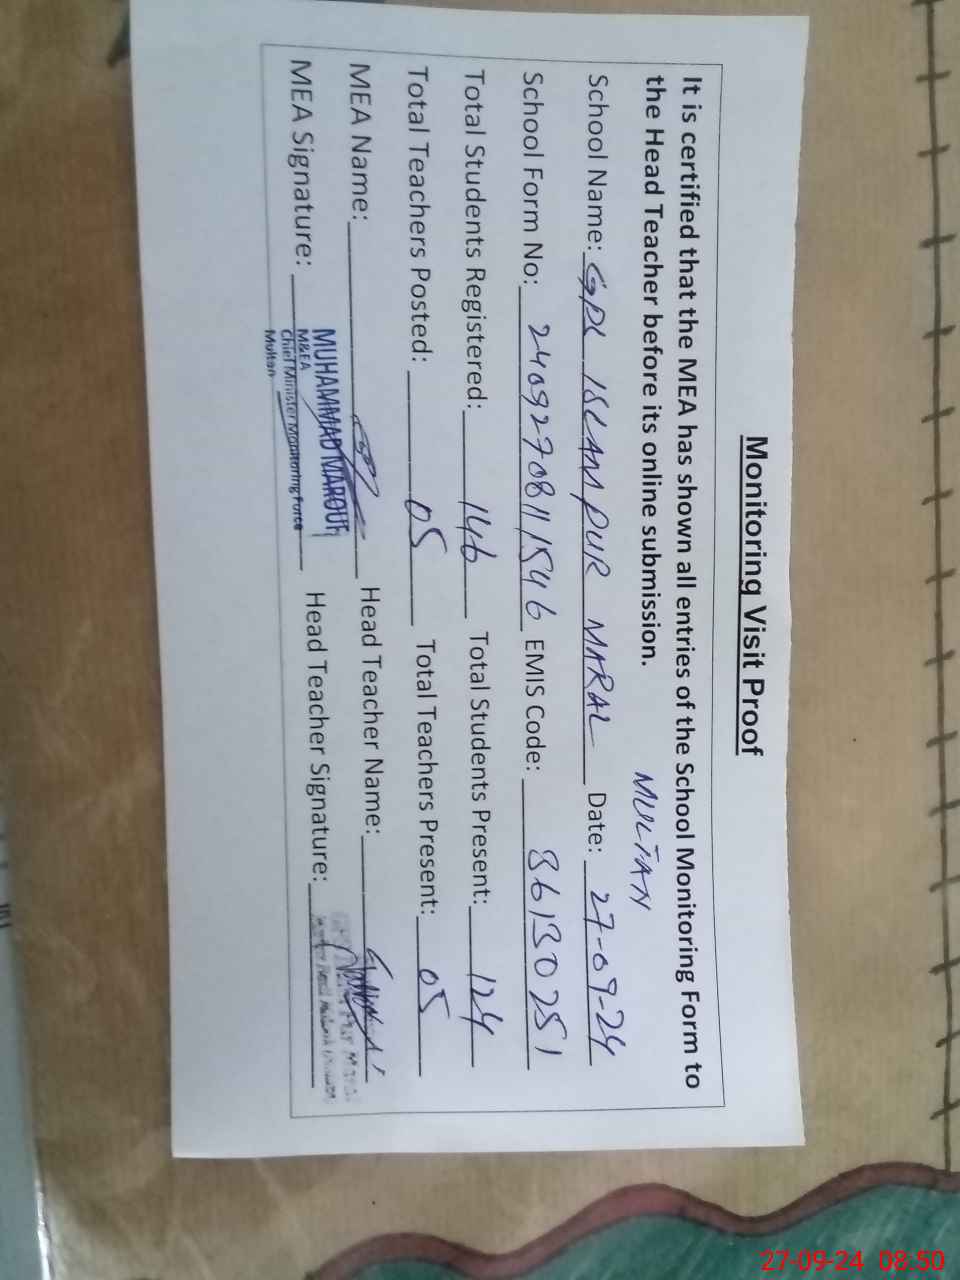 Monitoring Visit Proof
It is certified that the MEA has shown all entries of the School Monitoring Form to
the Head Teacher before its online submission.
MULTAN
School Name: GPS ISLAMPUR MARAL Date: 27-09-24
School Form No: 24092708111546 EMIS Code: 36130251
Total Students Registered: 146 Total Students Present: 124
Total Teachers Posted: 05 Total Teachers Present: 05
MEA Name: Head Teacher Name:
MEA Signature: Head Teacher Signature:
MUHAMMAD MAROUF
M&EA
Chief Minister Monitoring Force
Multan
27-09-24 08:50